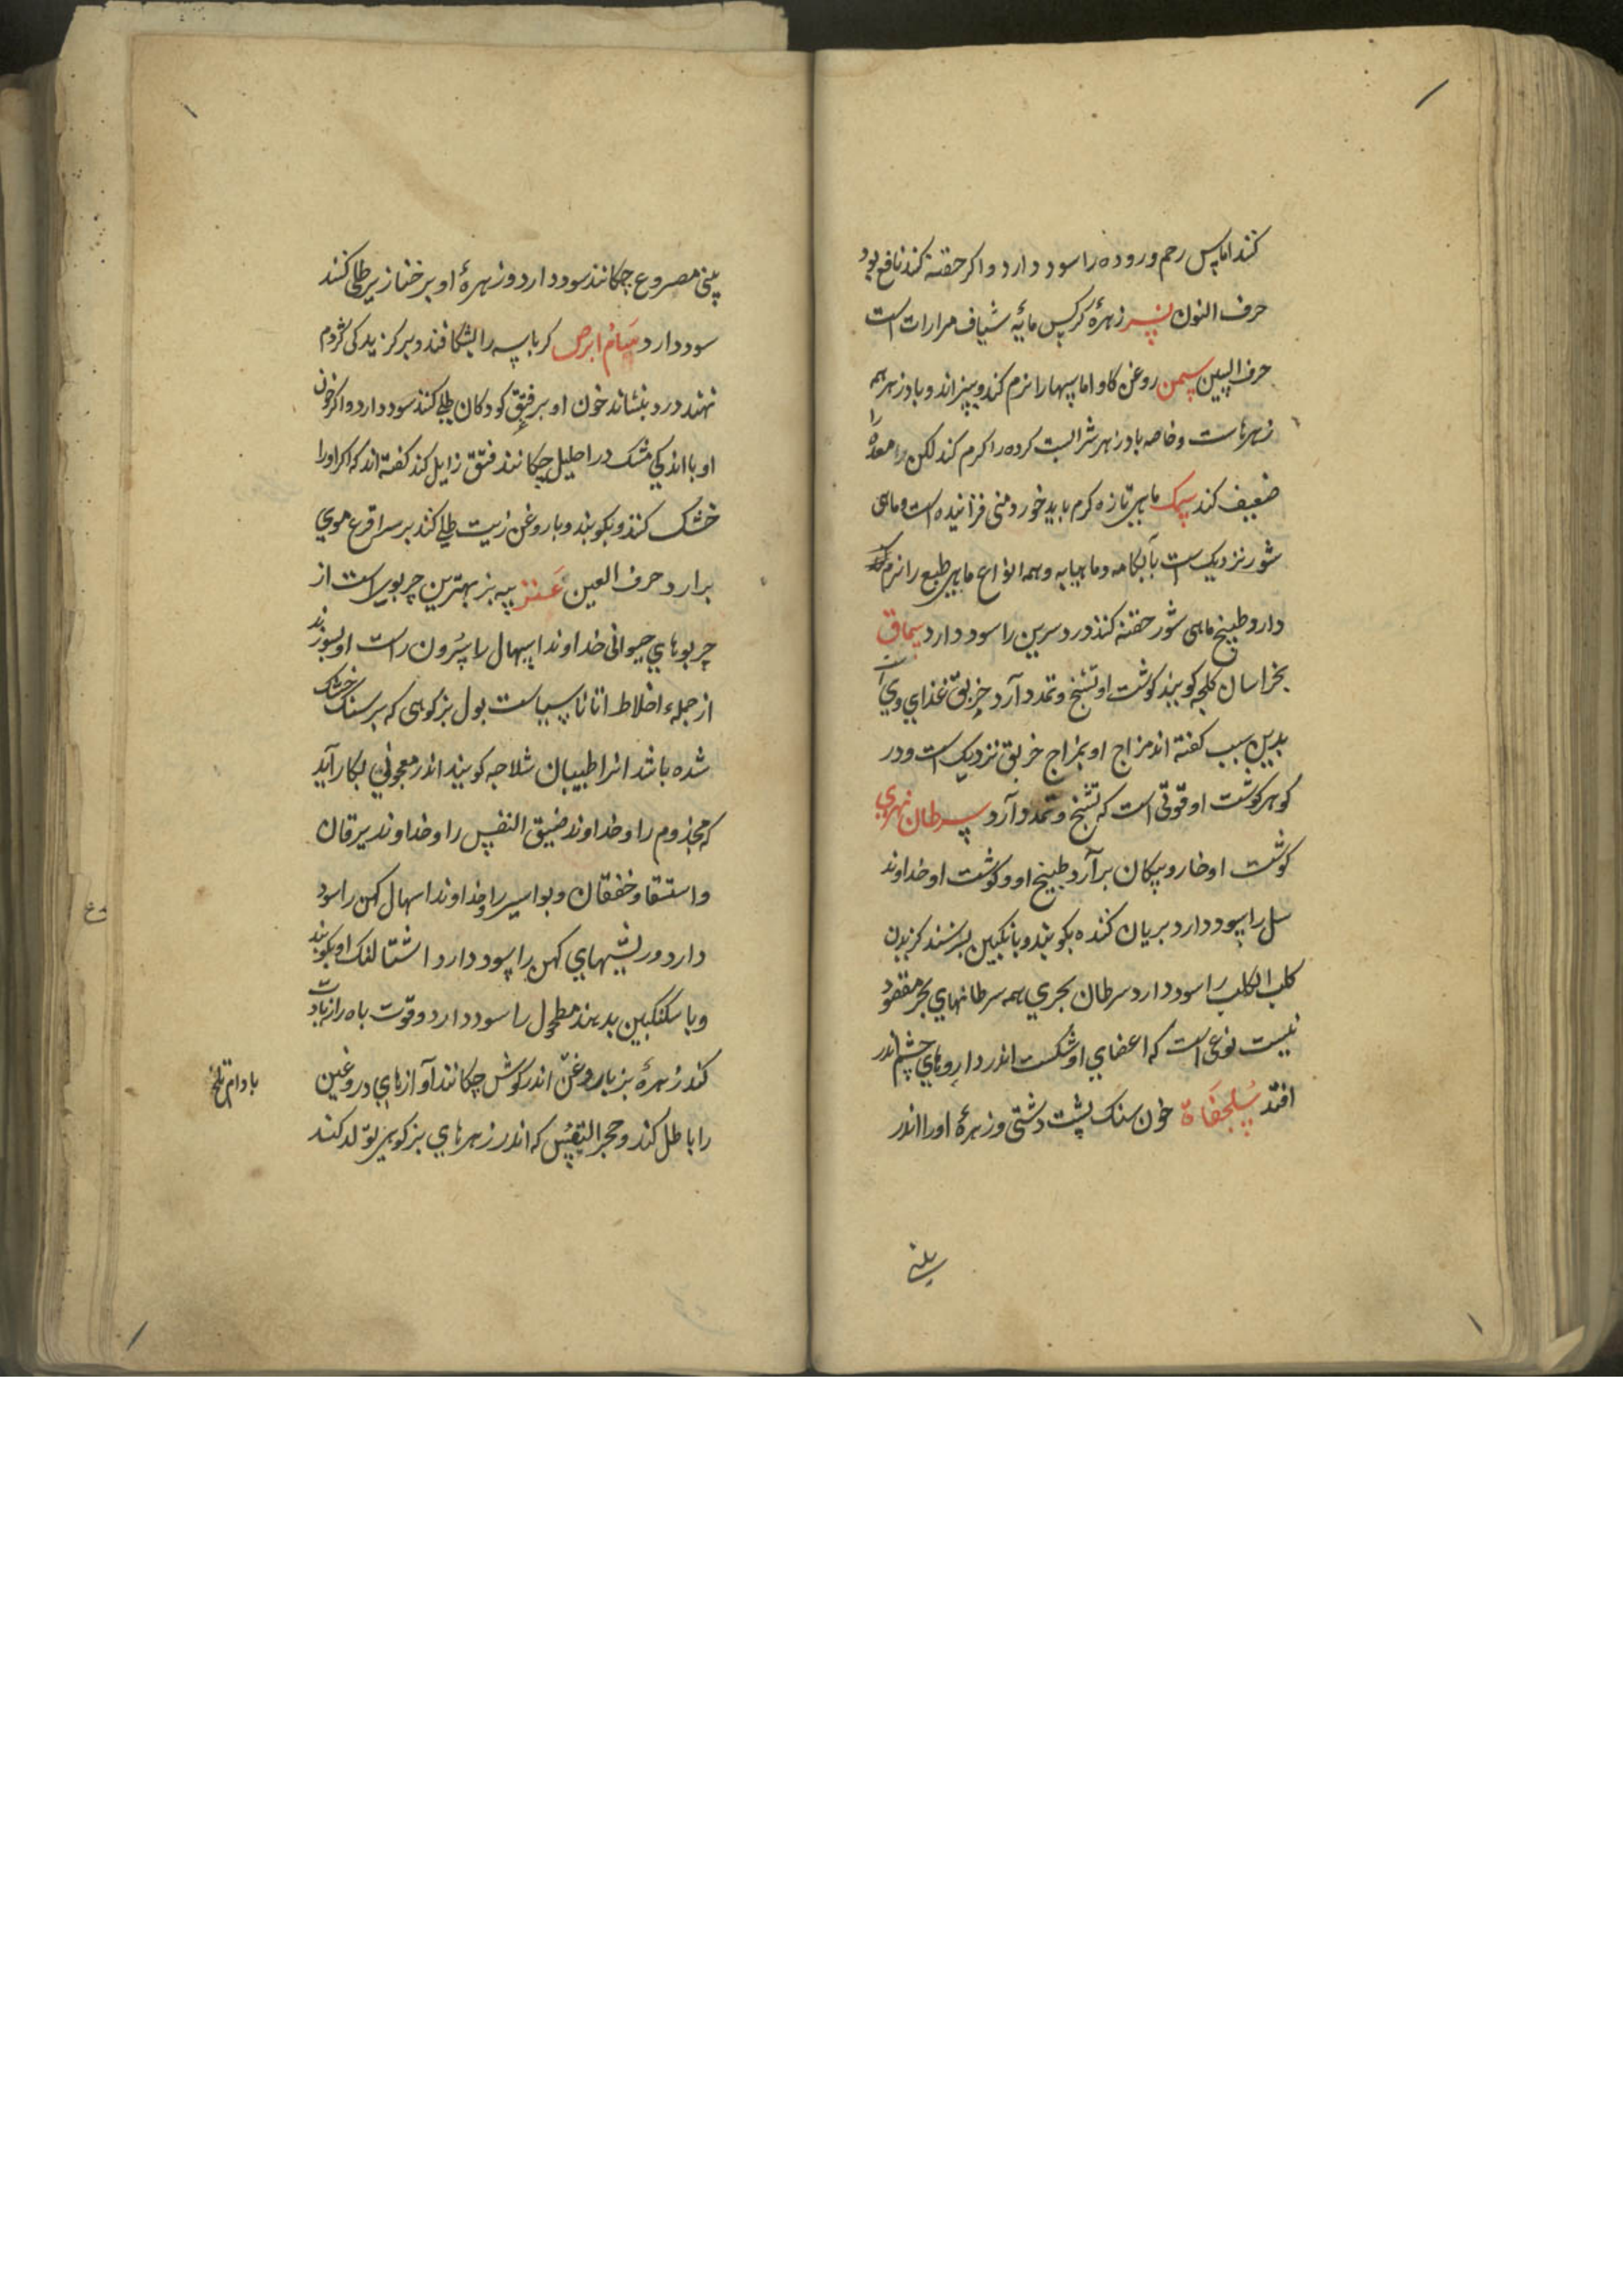 کنند اماس رحم و روده را سود دارد و اکر حقنه کنند نافع بود
حرف النون نسر زهرهٔ کرکس مایهٔ شیاف مرارات است
حرف السین سمن روغن کاو اماسها را نرم کند و بپزاند و بادزهر همه
زهرهاست و خاصه بادزهر شرابست کرده را کرم کند لکن معده را
ضعیف کند سمک ماهی تازه کرم باید خورد منی فزاینده است و ماهی
شور نزدیک است بآبکامه و ماهیابه و همه انواع ماهی طبع را نرم کند
دارد طبیخ ماهی شور حقنه کنند درد سرین را سود دارد سماق
بخراسان کلجه کویند کوشت او تشنج و تمدد آرد خربق غذای وی است
بدین سبب کفته اند مزاج او بمزاج خربق نزدیک است و در
کوهر کوشت او قوتی است که تشنج و تمدد آرد سرطان نهری
کوشت او خار و پیکان برآرد طبیخ او و کوشت او خداوند
سل را سود دارد بریان کنده بکوبند و بانکبین بسرشند کزیدن
کلب الکلب را سود دارد سرطان بحری همه سرطانهای بحر مقصود
نیست نوعی است که اعضای او شکست اندر داروهای چشم اندر
افتد سلحفاة خون سنک پشت دشتی و زهرهٔ او را اندر
بینی
بینی مصروع چکانند سود دارد و زهرهٔ او بر خنازیر طلی کنند
سود دارد سام ابرص کرباسه را بشکافند و بر کزیدکی کژدم
نهند درد بنشاند خون او بر فتق کودکان طلی کنند سود دارد و اکر خون
او با اندکی مشک در احلیل چکانند فتق زایل کند کفته اند که اکر او را
خشک کنند و بکوبند و با روغن زیت طلی کنند بر سر اقرع موی
برارد حرف العین عنز پیه بز بهترین چربوی است از
چربوهای حیوانی خداوند اسهال را سرون است او بسوزند
از جمله اخلاط اناناسیاست بول بز کوهی که بر سنک خشک
شده باشد انرا طبیبان شلاجه کویند اندر معجونی بکار آید
که مجذوم را و خداوند ضیق النفس را و خداوند یرقان
و استسقا و خفقان و بواسیر را و خداوند اسهال کهن را سود
دارد و ریشهای کهن را سود دارد اشتالنک او بکوبند
و با سکنکبین بدهند مطحول را سود دارد و قوت باه را زیادت
کند زهرهٔ بز با روغن اندر کوش چکانند آوازهای دروغین
بادام تلخ
را باطل کند و حجر التیس که اندر زهرهای بز کوهی تولد کند